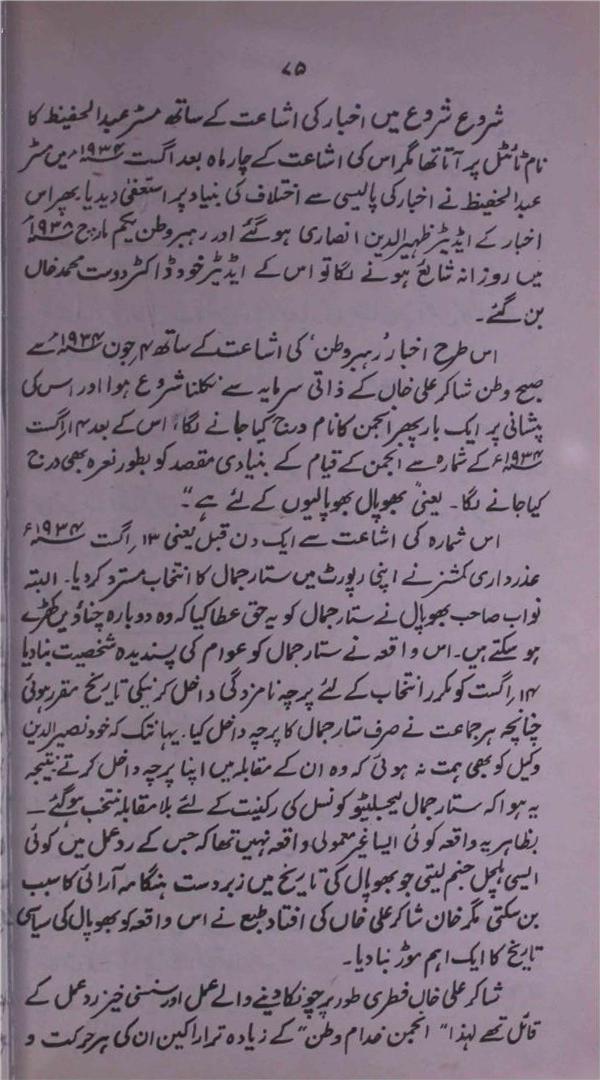 ۷۵
شروع شروع میں اخبار کی اشاعت کے ساتھ مسٹر عبدالحفیظ کا
نام ٹائٹل پر آتا تھا مگر اس کی اشاعت کے چار ماہ بعد اگست ۱۹۳۴ء میں مسٹر
عبدالحفیظ نے اخبار کی پالیسی سے اختلاف کی بنیاد پر استعفیٰ دیدیا پھر اس
اخبار کے ایڈیٹر ظہیر الدین انصاری ہو گئے اور رہبر وطن یکم مارچ ۱۹۳۸ء
میں روزانہ شائع ہونے لگا تو اس کے ایڈیٹر خود ڈاکٹر دوست محمد خاں
بن گئے۔
اس طرح اخبار ’رہبر وطن‘ کی اشاعت کے ساتھ ۴؍ جون ۱۹۳۴ء سے
صبح وطن شاکر علی خاں کے ذاتی سرمایہ سے نکلنا شروع ہوا اور اس کی
پیشانی پر ایک بار پھر انجمن کا نام درج کیا جانے لگا، اس کے بعد ۱۴؍ اگست
۱۹۳۴ء کے شمارہ سے انجمن کے قیام کے بنیادی مقصد کو بطور نعرہ بھی درج
کیا جانے لگا۔ یعنی ”بھوپال بھوپالیوں کے لئے ہے“۔
اس شمارہ کی اشاعت سے ایک دن قبل یعنی ۱۳؍ اگست ۱۹۳۴ء
عذرداری کمشنر نے اپنی رپورٹ میں ستار جمال کا انتخاب مسترد کر دیا۔ البتہ
نواب صاحب بھوپال نے ستار جمال کو یہ حق عطا کیا کہ وہ دوبارہ چناؤ میں کھڑے
ہو سکتے ہیں۔ اس واقعہ نے ستار جمال کو عوام کی پسندیدہ شخصیت بنا دیا
۱۴؍ اگست کو مکرر انتخاب کے لئے پرچہ نامزدگی داخل کرنیکی تاریخ مقرر ہوئی
چنانچہ ہر جماعت نے صرف ستار جمال کا پرچہ داخل کیا۔ یہانتک کہ خود نصیر الدین
وکیل کو بھی ہمت نہ ہوئی کہ وہ ان کے مقابلہ میں اپنا پرچہ داخل کرتے، نتیجہ
یہ ہوا کہ ستار جمال لیجسلیٹو کونسل کی رکنیت کے لئے بلا مقابلہ منتخب ہو گئے۔
بظاہر یہ واقعہ کوئی ایسا غیر معمولی واقعہ نہیں تھا کہ جس کے رد عمل میں کوئی
ایسی ہلچل جنم لیتی جو بھوپال کی تاریخ میں زبردست ہنگامہ آرائی کا سبب
بن سکتی مگر خان شاکر علی خاں کی افتاد طبع نے اس واقعہ کو بھوپال کی سیاسی
تاریخ کا ایک اہم موڑ بنا دیا۔
شاکر علی خاں فطری طور پر چونکا دینے والے عمل اور سنسنی خیز رد عمل کے
قائل تھے لہٰذا ”انجمن خدام وطن“ کے زیادہ تر اراکین ان کی ہر حرکت و